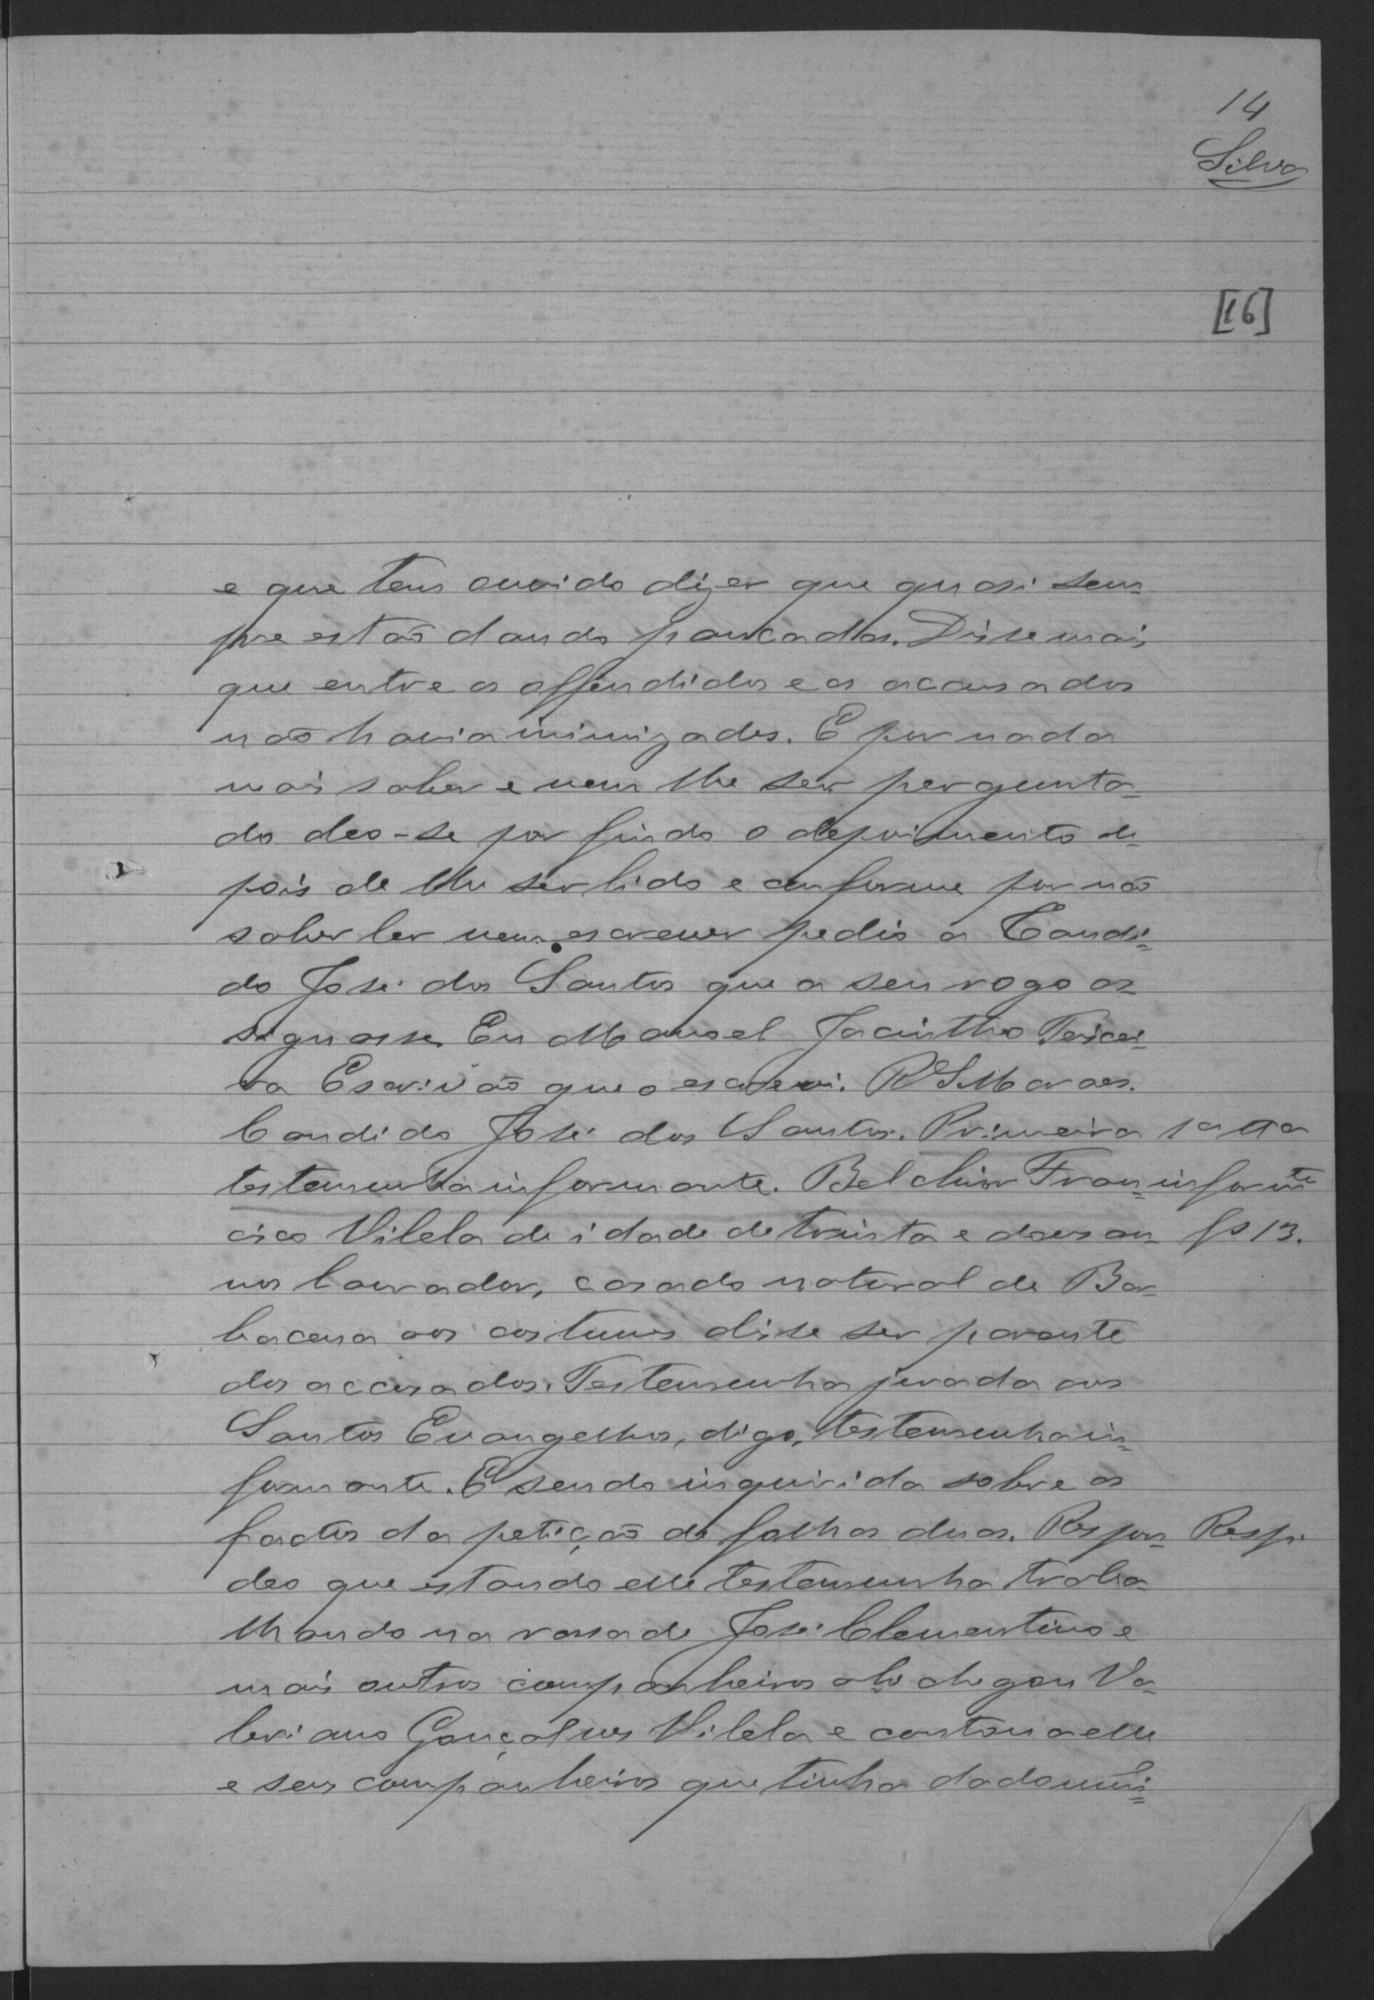 14
Silva
[16]
e que tem ouvido dizer que quasi sem=
pre estão dando pancadas. Disse mais
que entre os offendidos e os accusados
não havia inimizades. E por nada
mais saber e nem lhe ser pergunta=
do deo-se por findo o depoimento de=
pois de lhe ser lido e conforme por não
saber ler nem escrever pedio a Candi=
do José dos Santos que a seu rogo as=
signasse. Eu Manoel Jacintho Teixei=
ra Escrivão que o escrevi. R S Moraes.
Candido José dos Santos. Primeira
testemunha informante. Belchior Fran=
cisco Vilela de idade de trinta e dous an=
nos lavrador, casado natural de Bar=
bacena aos costumes disse ser parente
dos accusados. Testemunha jurada aos
Santos Evangelhos, digo, testemunha in=
formante. E sendo inquirida sobre os
factos da petição de folhas duas. Respon=
deo que estando elle testemunha traba=
lhando na rossa de José Clementino e
mais outros companheiros ahi chegou Va=
leriano Gonçalves Vilela e contou a elle
e seus companheiros que tinha dado mui=
1ª ttª
informte
fs 13.
Resp.